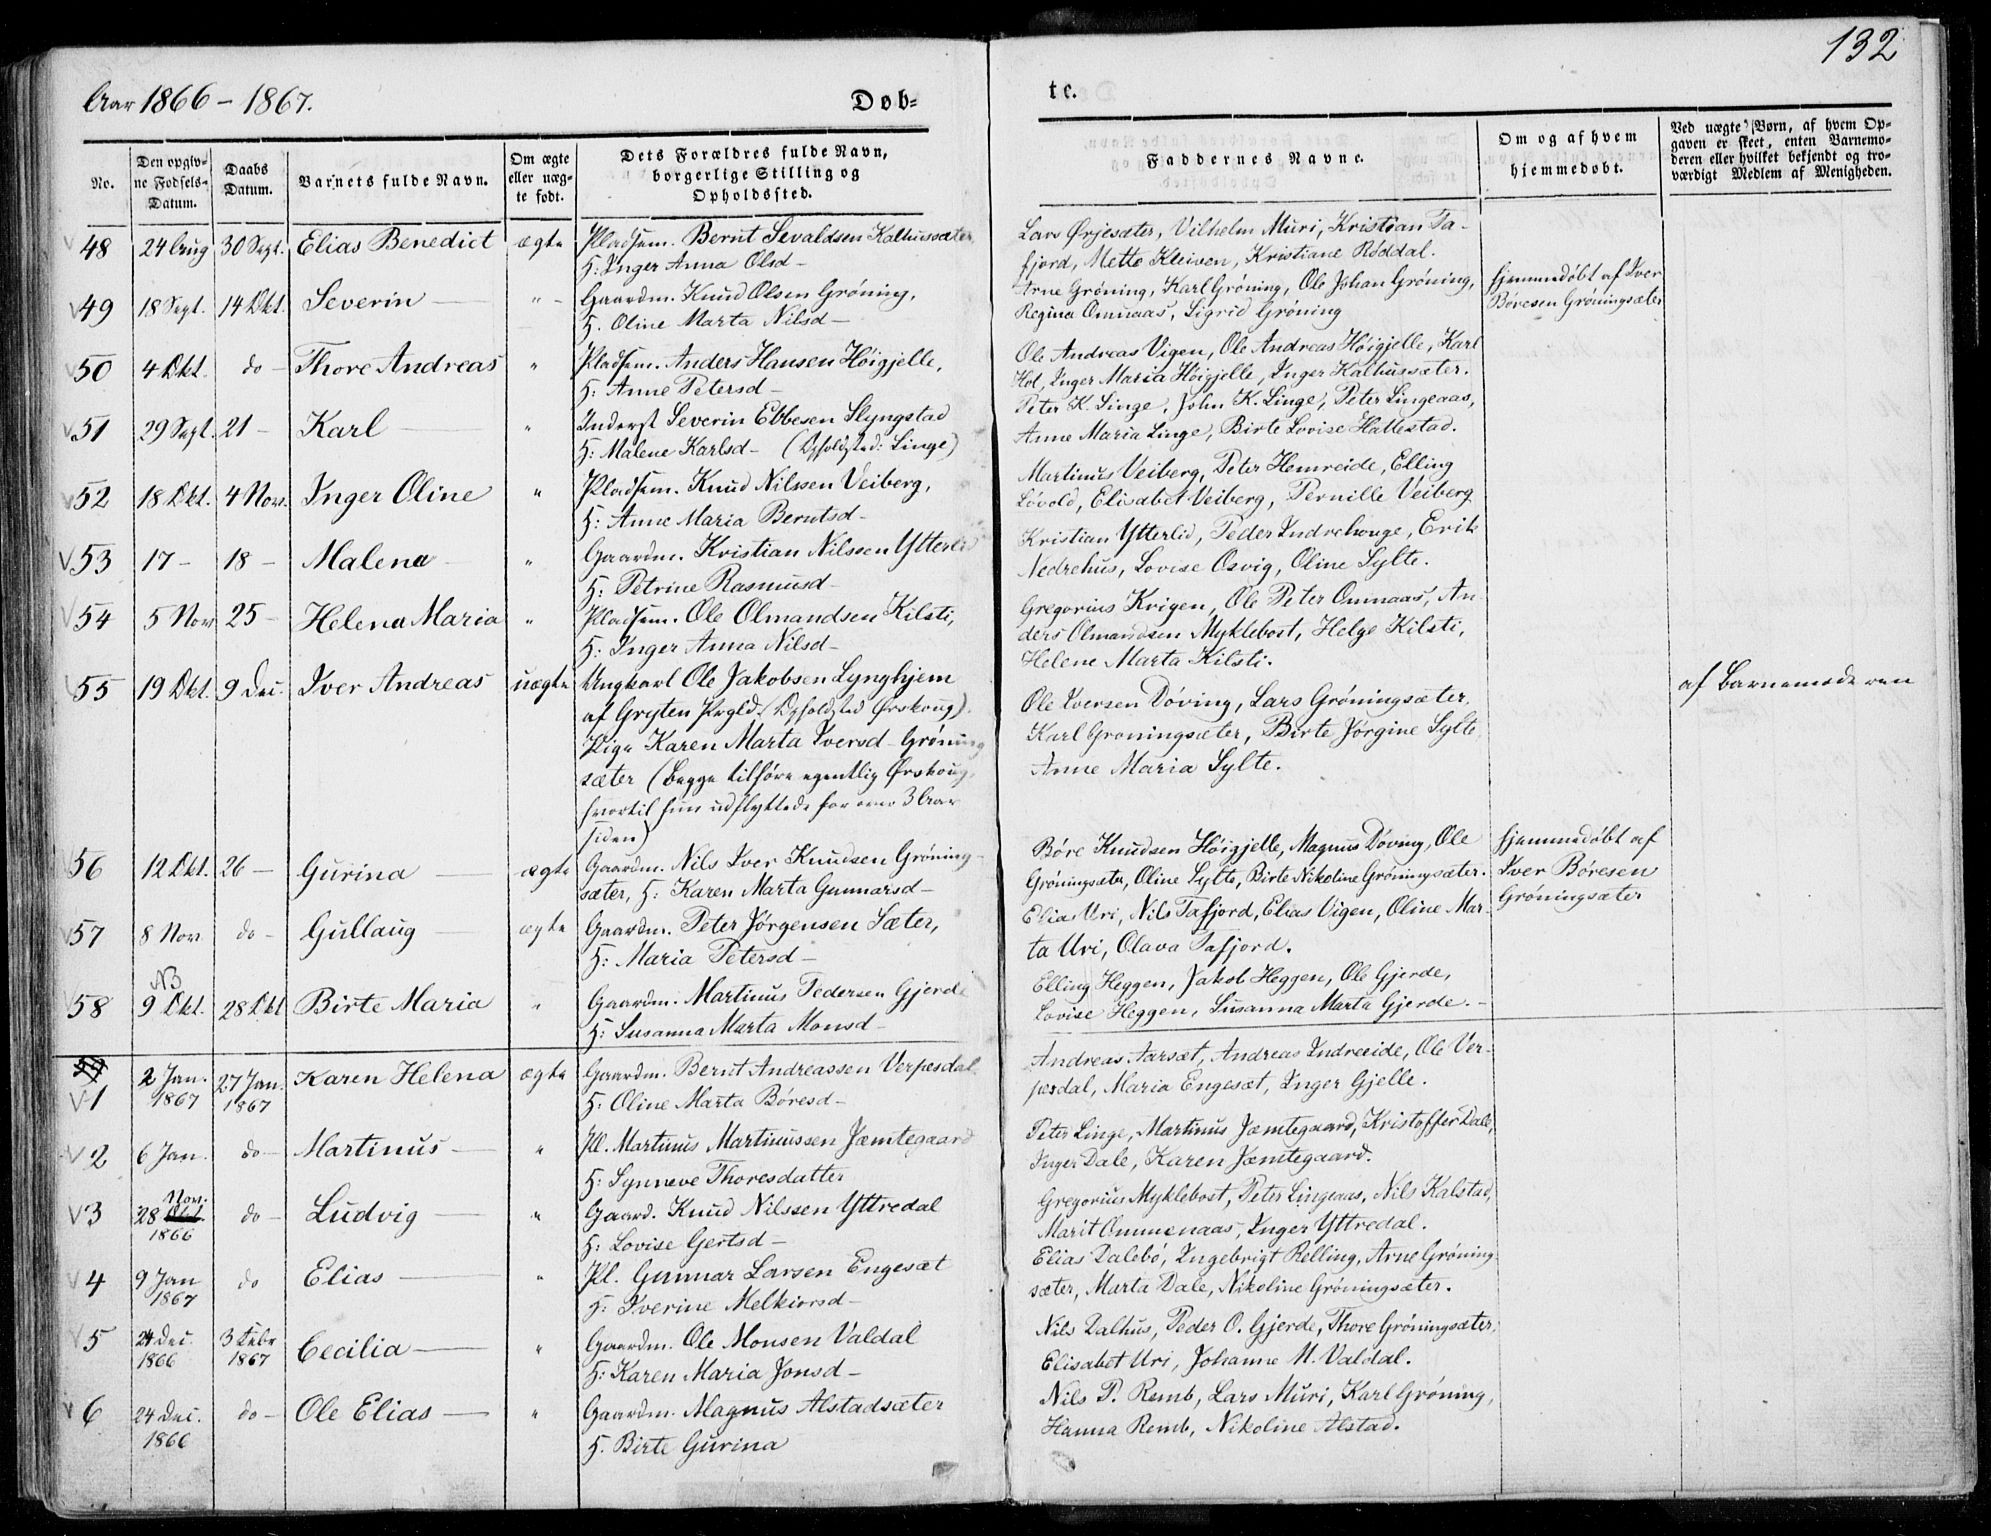 132
Aar 1866-1867.
Døb-
te.
No.
Den opgiv-
ne Fødsels-
Datum.
Daabs
Datum.
Barnets fulde Navn.
Om ægte
eller uæg-
te født.
Dets Forældres fulde Navn,
borgerlige Stilling og
Opholdssted.
Faddernes Navne.
Om og af hvem
hjemmedøbt.
Ved uægte Børn, af hvem Op-
gaven er skeet, enten Barnemo-
deren eller hvilket bekjendt og tro-
værdigt Medlem af Menigheden.
48 24 Aug 30 Sept. Elias Benedict ægte Pladsem. Bernt Sevaldsen Kalhussæter,
H: Inger Anna Olsd-
Lars Ørjesæter, Vilhelm Muri, Kristian Ta-
fjord, Mette Kleiven, Kristiane Røddal.
49 18 Sept. 14 Okt. Severin " Gaardm. Knud Olsen Grøning,
H. Oline Marta Nilsd-
Arne Grøning, Karl Grøning, Ole Johan Grøning,
Regina Omnaas, Sigrid Grøning
hjemmedøbt af Iver
Børesen Grøningsæter
50 4 Okt. do- Thore Andreas " Pladsem. Anders Hansen Høigjelle,
H: Anne Petersd-
Ole Andreas Vigen, Ole Andreas Høigjelle, Karl
Hol, Inger Maria Høigjelle, Inger Kalhussæter.
51 29 Sept. 21- Karl " Inderst Severin Ebbesen Slyngstad
H: Malene Karlsd- (Opholdsted: Linge)
Peter K. Linge, John K. Linge, Peter Lingeaas,
Anne Maria Linge, Birte Lovise Hattestad.
52 18 Okt. 4 Nov. Inger Oline " Pladsem. Knud Nilssen Veiberg,
H: Anne Maria Berntsd-
Martinus Veiberg, Peter Hemreide, Elling
Løvold, Elisabet Veiberg, Pernille Veiberg
53 17- 18- Malena " Gaardm. Kristian Nilssen Ytterlid
H: Petrine Rasmusd-
Kristian Ytterlid, Peder Indrehouge, Erik
Nedrehus, Lovise Osvig, Oline Sylte.
54 5 Nov 25- Helena Maria " Pladsem. Ole Olmandsen Kilsti,
H: Inger Anna Nilsd-
Gregorius Krigen, Ole Peter Omnaas, An-
ders Olmandsen Myklebost, Helge Kilsti,
Helene Marta Kilsti.
55 19 Okt. 9 Dec. Iver Andreas uægte Ungkarl Ole Jakobsen Lynghjem
af Gryten Prgld. (Opholdsted Ørskoug).
Pige Karen Marta Iversd- Grøning-
sæter (begge tilføre egentlig Ørskoug,
hvortil hun udflyttede for over 3 Aar
siden)
Ole Iversen Døving, Lars Grøningsæter,
Karl Grøningsæter, Birte Jørgine Sylte
Anne Maria Sylte.
af Barnemoderen
56 12 Okt. 26- Gurina ægte Gaardm. Nils Iver Knudsen Grøning-
sæter, H: Karen Marta Gunnarsd-
Børe Knudsen Høigjelle, Magnus Døving, Ole
Grøningsæter, Oline Sylte, Birte Nikoline Grøningsæter.
hjemmedøbt af
Iver Børesen
Grøningsæter
57 8 Nov do- Gullaug ægte Gaardm. Peter Jørgensen Sæter,
H: Maria Petersd-
Elias Uri, Nils Tafjord, Elias Vigen, Oline Mar-
ta Uri, Olava Tafjord.
NB
58 9 Okt. 28 Okt Birte Maria " Gaardm. Martinus Pedersen Gjerde
H: Susanna Marta Monsd-
Elling Heggen, Jakob Heggen, Ole Gjerde,
Lovise Heggen, Susanna Marta Gjerde.-
59
1 2 Jan. 1867 27 Jan. 1867 Karen Helena ægte Gaardm. Bernt Andreassen Verpesdal
H: Oline Marta Børesd-
Andreas Aarsæt, Andreas Indreeide, Ole Ver-
pesdal, Maria Engesæt, Inger Gjelle.
2 6 Jan. do- Martinus " Pl. Martinus Martinussen Jæmtegaard
H: Synneve Thoresdatter
Peter Linge, Martinus Jæmtegaard, Kristoffer Dale,
Inger Dale, Karen Jæmtegaard.
3 28 Nov. 1866 do- Ludvig " Gaard. Knud Nilssen Yttredal
H: Lovise Gertsd-
Gregorius Myklebost, Peter Lingeaas, Nils Kalstad,
Marit Ommenaas, Inger Yttredal.
4 9 Jan 1867 do Elias " Pl. Gunnar Larsen Engesæt
H: Iverine Melkiorsd-
Elias Dalebø, Ingebrigt Relling, Arne Grøning-
sæter, Marta Dale, Nikoline Grøningsæter.
5 24 Dec. 1866 3 Febr 1867 Cecilia " Gaardm. Ole Monsen Valdal
H: Karen Maria Jonsd-
Nils Dalhus, Peder O. Gjerde, Thore Grøningsæter,
Elisabet Uri, Johanne M. Valdal.
6 24 Dec. 1866 do- Ole Elias " Gaardm. Magnus Alstadsæter
H. Birte Gurina
Nils P. Remb, Lars Muri, Karl Grøning,
Hanna Remb, Nikoline Alstad.